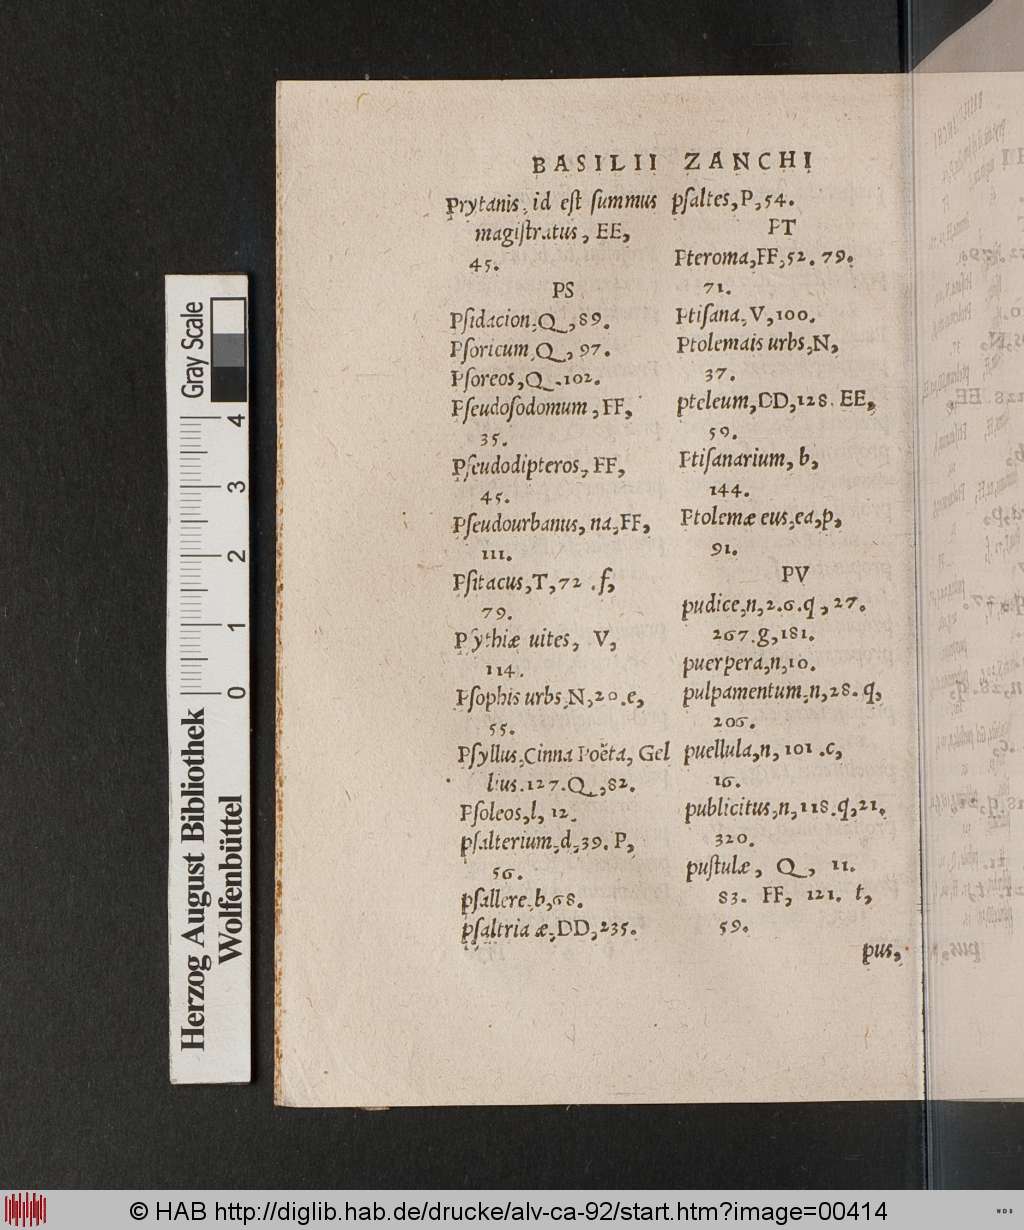 BASILII ZANCHI
Prytanis, id eſt ſummus
magiſtratus, EE,
45.
PS
Pſidacion, Q, 89.
Pſoricum, Q, 97.
Pſoreos, Q. 102.
Pſeudoſodomum, FF,
35.
Pſeudodipteros, FF,
45.
Pſeudourbanus, na, FF,
111.
Pſitacus, T, 72. f,
79.
Pſythiæ uites, V,
114.
Pſophis urbs, N, 20. e,
55.
Pſyllus, Cinna Poëta, Gel
lius. 127. Q, 82.
Pſoleos, l, 12.
pſalterium, d, 39. P,
56.
pſallere, b, 68.
pſaltria æ, DD, 235.
pſaltes, P, 54.
PT
Pteroma, FF, 52. 79.
71.
Ptiſana, V, 100.
Ptolemais urbs, N,
37.
pteleum, DD, 128. EE,
59.
Ptiſanarium, b,
144.
Ptolemæeus, ea, p,
91.
PV
pudice, n, 2.6. q, 27.
267. g, 181.
puerpera, n, 10.
pulpamentum, n, 28. q,
206.
puellula, n, 101. c,
16.
publicitus, n, 118. q, 21.
320.
puſtulæ, Q, 11.
83. FF, 121. t,
59.
pus,
Herzog August Bibliothek
Wolfenbüttel
0 1 2 3 4
Gray Scale
© HAB http://diglib.hab.de/drucke/alv-ca-92/start.htm?image=00414